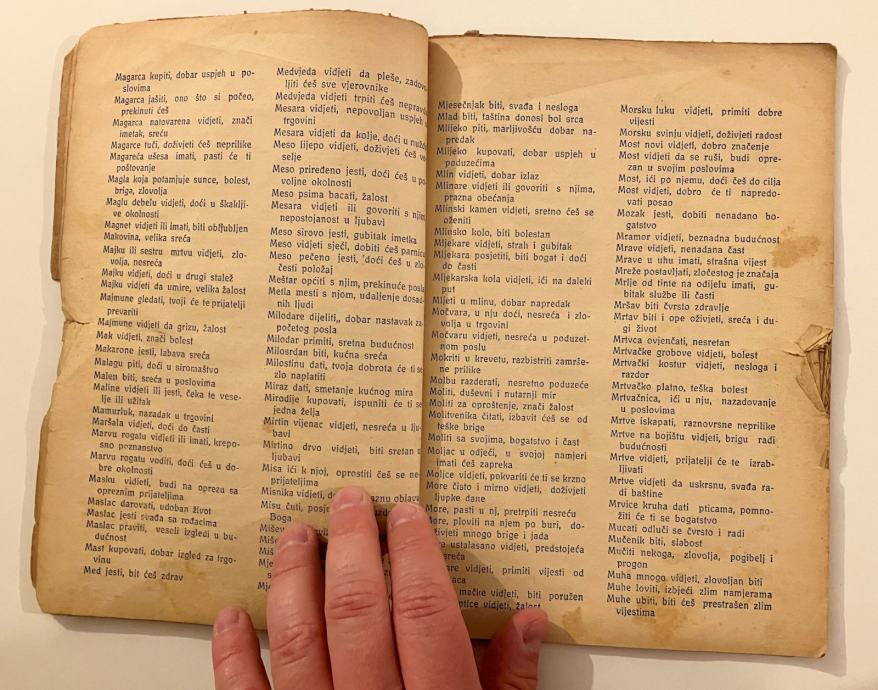 Magarca kupiti, dobar uspjeh u po-
slovima
Magarca jašiti, ono što si počeo,
prekinuti ćeš
Magarca natovarena vidjeti, znači
imetak, sreću
Magarce tući, doživjeti ćeš neprilike
Magareća ušesa imati, pasti će ti
poštovanje
Magla koja potamjuje sunce, bolest,
briga, zlovolja
Maglu debelu vidjeti, doći u škaklji-
ve okolnosti
Magnet vidjeti ili imati, biti obljubljen
Makovina, velika sreća
Majku ili sestru mrtvu vidjeti, zlo-
volja, nesreća
Majku vidjeti, doći u drugi stalež
Majku vidjeti da umire, velika žalost
Majmune gledati, tvoji će te prijatelji
prevariti
Majmune vidjeti da grizu, žalost
Mak vidjeti, znači bolest
Makarone jesti, labava sreća
Malagu piti, doći u siromaštvo
Malen biti, sreća u poslovima
Maline vidjeti ili jesti, čeka te vese-
lje ili užitak
Mamurluk, nazadak u trgovini
Maršala vidjeti, doći do časti
Marvu rogatu vidjeti ili imati, krepo-
sno poznanstvo
Marvu rogatu voditi, doći ćeš u do-
bre okolnosti
Masku vidjeti, budi na oprezu sa
opreznim prijateljima
Maslac darovati, udoban život
Maslac jesti svađa sa rođacima
Maslac praviti, veseli izgledi u bu-
dućnost
Mast kupovati, dobar izgled za trgo-
vinu
Med jesti, bit ćeš zdrav
Medvjeda vidjeti da pleše,
ljiti ćeš sve vjerovnike
Medvjeda vidjeti trpiti ćeš
Mesara vidjeti, nepovoljan uspjeh
trgovini
Mesara vidjeti da kolje, doći u
Meso lijepo vidjeti, doživjeti ćeš
selje
Meso priređeno jesti, doći ćeš u
voljne okolnosti
Meso psima bacati, žalost
Mesara vidjeti ili govoriti s
nepostojanost u ljubavi
Meso sirovo jesti, gubitak imetka
Meso vidjeti sjeći, dobiti ćeš
Meso pečeno jesti, doći ćeš u
česti položaj
Meštar općiti s njim, prekinuće
Metla mesti s njom, udaljenje
nih ljudi
Milodare dijeliti, dobar nastavak
početog posla
Milodar primiti, sretna budućnost
Milosrdan biti, kućna sreća
Milostinu dati, tvoja dobrota će ti
zlo naplatiti
Miraz dati, smetanje kućnog mira
Mirodije kupovati, ispuniti će ti
jedna želja
Mirtin vijenac vidjeti, nesreća u
bavi
Mirtino drvo vidjeti, biti sretan
ljubavi
Misa ići k njoj, oprostiti ćeš se
prijateljima
Misnika vidjeti,
Misu čuti,
Boga
Mjesečnjak biti, svađa i nesloga
Mlad biti, taština donosi bol srca
Mlijeko piti, marljivošću dobar na-
predak
Mlijeko kupovati, dobar uspjeh u
poduzećima
Mlin vidjeti, dobar izlaz
Mlinare vidjeti ili govoriti s njima,
prazna obećanja
Mlinski kamen vidjeti, sretno ćeš se
oženiti
Mlinsko kolo, biti bolestan
Mljekare vidjeti, strah i gubitak
Mljekara posjetiti, biti bogat i doći
do časti
Mljekarska kola vidjeti, ići na daleki
put
Mljeti u mlinu, dobar napredak
Močvara, u nju doći, nesreća i zlo-
volja u trgovini
Močvaru vidjeti, nesreća u poduzet-
nom poslu
Mokriti u krevetu, razbistriti zamrše-
ne prilike
Molbu razderati, nesretno poduzeće
Moliti, duševni i nutarnji mir
Moliti za oproštenje, znači žalost
Molitvenika čitati, izbavit ćeš se od
teške brige
Moliti sa svojima, bogatstvo i čast
Moljac u odjeći, u svojoj namjeri
imati ćeš zapreka
Moljce vidjeti, pokvariti će ti se krzno
More čisto i mirno vidjeti, doživjeti
ljupke dane
More, pasti u nj, pretrpiti nesreću
More, ploviti na njem po buri, do-
živjeti mnogo brige i jada
ustalasano vidjeti, predstojeća
vidjeti, primiti vijesti od
mačke vidjeti, biti poražen
ptice vidjeti, žalost
Morsku luku vidjeti, primiti dobre
vijesti
Morsku svinju vidjeti, doživjeti radost
Most novi vidjeti, dobro značenje
Most vidjeti da se ruši, budi opre-
zan u svojim poslovima
Most, ići po njemu, doći ćeš do cilja
Most vidjeti, dobro će ti napredo-
vati posao
Mozak jesti, dobiti nenadano bo-
gatstvo
Mramor vidjeti, beznadna budućnost
Mrave vidjeti, nenadana čast
Mrave u uhu imati, strašna vijest
Mreže postavljati, zločestog je značaja
Mrlje od tinte na odijelu imati, gu-
bitak službe ili časti
Mršav biti čvrsto zdravlje
Mrtav biti i ope oživjeti, sreća i du-
gi život
Mrtvca ovjenčati, nesretan
Mrtvačke grobove vidjeti, bolest
Mrtvački kostur vidjeti, nesloga i
razdor
Mrtvačko platno, teška bolest
Mrtvačnica, ići u nju, nazadovanje
u poslovima
Mrtve iskapati, raznovrsne neprilike
Mrtve na bojištu vidjeti, brigu radi
budućnosti
Mrtve vidjeti, prijatelji će te izrab-
ljivati
Mrtve vidjeti da uskrsnu, svađa ra-
di baštine
Mrvice kruha dati pticama, pomno-
žiti će ti se bogatstvo
Mucati odluči se čvrsto i radi
Mučenik biti, slabost
Mučiti nekoga, zlovolja, pogibelj i
progon
Muha mnogo vidjeti, zlovoljan biti
Muhe loviti, izbjeći zlim namjerama
Muhe ubiti, biti ćeš prestrašen zlim
vijestima